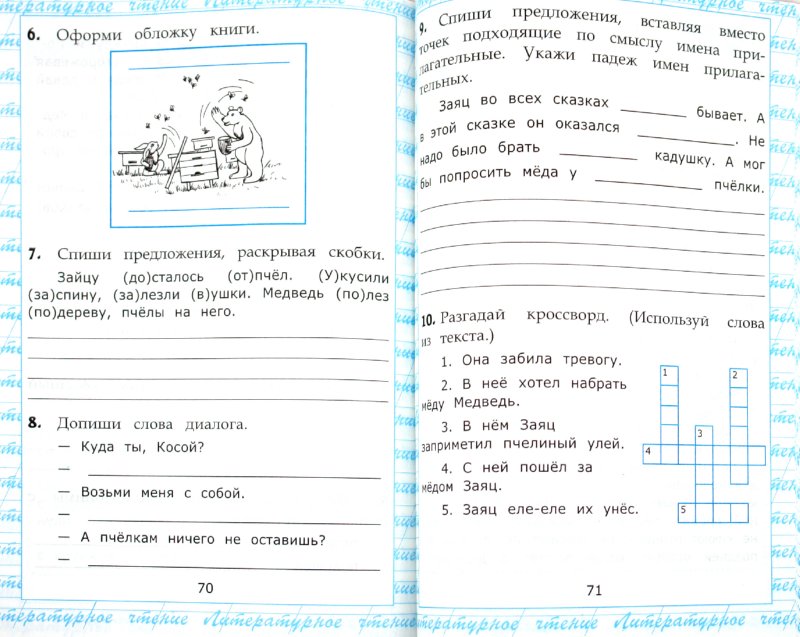 Литературное чтение Литературное чтение
6. Оформи обложку книги.
7. Спиши предложения, раскрывая скобки.
Зайцу (до)сталось (от)пчёл. (У)кусили
(за)спину, (за)лезли (в)ушки. Медведь (по)лез
(по)дереву, пчёлы на него.
8. Допиши слова диалога.
— Куда ты, Косой?
—
— Возьми меня с собой.
—
— А пчёлкам ничего не оставишь?
—
70
9. Спиши предложения, вставляя вместо
точек подходящие по смыслу имена при-
лагательные. Укажи падеж имен прилага-
тельных.
Заяц во всех сказках ________ бывает. А
в этой сказке он оказался ____________. Не
надо было брать __________ кадушку. А мог
бы попросить мёда у ______________ пчёлки.
10. Разгадай кроссворд. (Используй слова
из текста.)
1. Она забила тревогу.
2. В неё хотел набрать
мёду Медведь.
3. В нём Заяц
заприметил пчелиный улей.
4. С ней пошёл за
мёдом Заяц.
5. Заяц еле-еле их унёс.
1
2
3
4
5
71
чтение Литературное чтение Литературное чтение